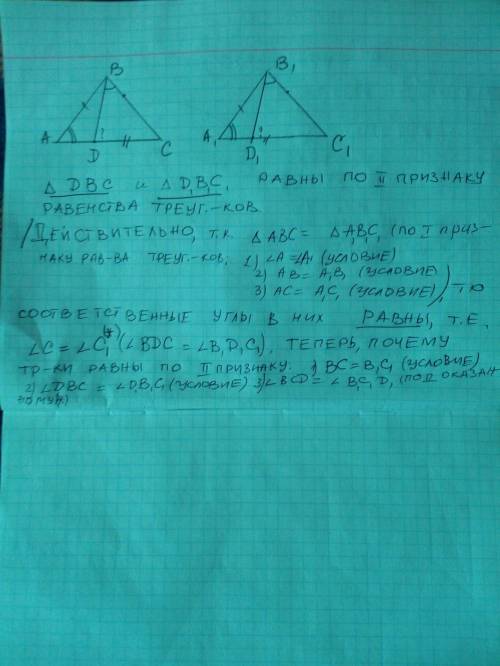 B
A
D
C
B₁
A₁
D₁
C₁
△ DBC и △ D₁B₁C₁ РАВНЫ ПО II ПРИЗНАКУ
РАВЕНСТВА ТРЕУГ.-КОВ.
ДЕЙСТВИТЕЛЬНО, Т.К. △ABC = △A₁B₁C₁ (ПО I ПРИЗ-
НАКУ РАВ-ВА ТРЕУГ.-КОВ: 1) ∠A = ∠A₁ (УСЛОВИЕ)
2) AB = A₁B₁ (УСЛОВИЕ)
3) AC = A₁C₁ (УСЛОВИЕ)), ТО
СООТВЕТСТВЕННЫЕ УГЛЫ В НИХ РАВНЫ, Т.Е.
∠C = ∠C₁ (*) (∠BDC = ∠B₁D₁C₁), ТЕПЕРЬ, ПОЧЕМУ
ТР-КИ РАВНЫ ПО II ПРИЗНАКУ. 1) BC = B₁C₁ (УСЛОВИЕ)
2) ∠DBC = ∠D₁B₁C₁ (УСЛОВИЕ) 3) ∠BCD = ∠B₁C₁D₁ (ПО